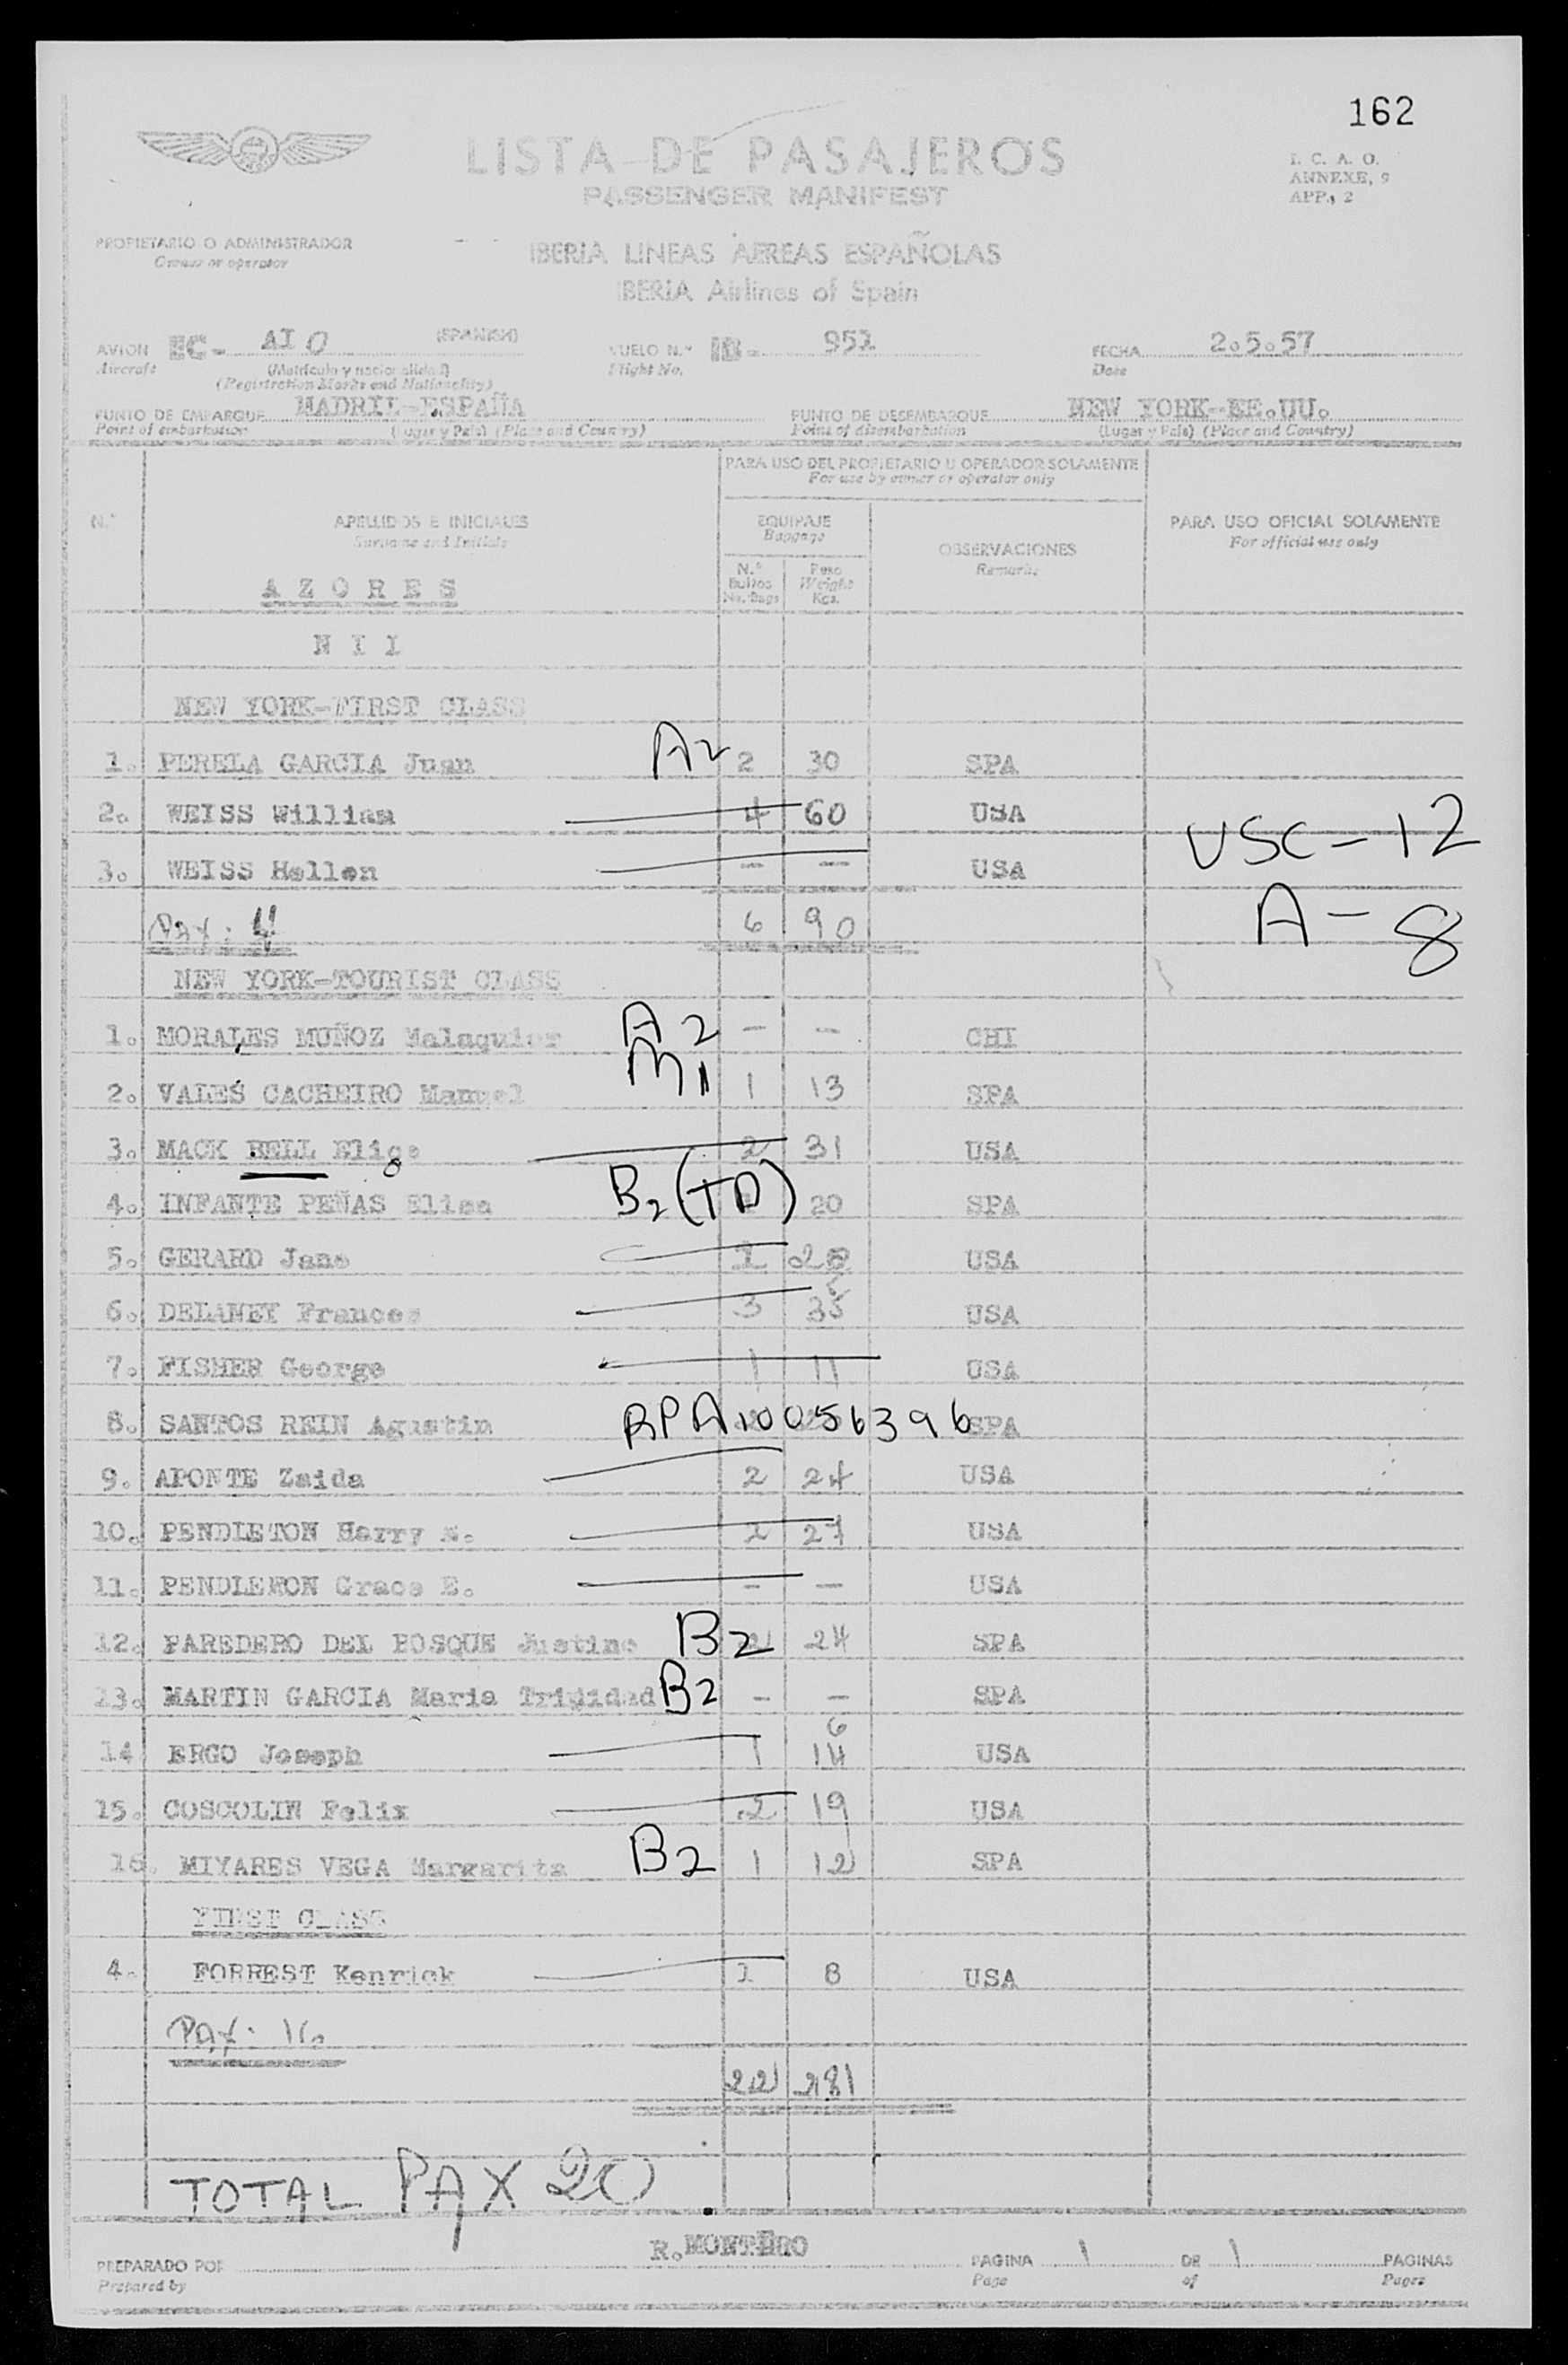 162
LISTA DE PASAJEROS
PASSENGER MANIFEST
I. C. A. O.
ANNEXE, 9
APP., 2
PROPIETARIO O ADMINISTRADOR
Owner or operator
IBERIA LINEAS AEREAS ESPAÑOLAS
IBERIA Airlines of Spain
AVION EC- AIO (SPANISH) VUELO N.° IB- 951 FECHA 2.5.57
Aircraft (Matrícula y nacionalidad) Flight No. Date
(Registration Marks and Nationality)
PUNTO DE EMBARQUE MADRIL-ESPAÑA PUNTO DE DESEMBARQUE NEW YORK-EE.UU.
Point of embarkation (Lugar y País) (Place and Country) Point of disembarkation (Lugar y País) (Place and Country)
PARA USO DEL PROPIETARIO U OPERADOR SOLAMENTE
For use by owner or operator only
N.° APELLIDOS E INICIALES EQUIPAJE OBSERVACIONES PARA USO OFICIAL SOLAMENTE
Surname and Initials Baggage Remarks For official use only
N.° Bultos No. Bags Peso Weight Kgs.
AZORES
NII
NEW YORK-FIRST CLASS
1. PERELA GARCIA Juan A2 2 30 SPA
2. WEISS William 4 60 USA
USC = 12
3. WEISS Hellen - - USA
Pax: 4 6 90
A - 8
NEW YORK-TOURIST CLASS
1. MORALES MUÑOZ A2 - - CHI
2. VALES CACHEIRO Manuel M1 1 13 SPA
3. MACK BELL 2 31 USA
4. INFANTE PEÑAS Elisa B2 (TD) 20 SPA
5. GERARD Jane USA
6. DELANEY Frances 3 35 USA
7. FISHER George 1 11 USA
8. SANTOS REIN Agustin RPA10056396 SPA
9. APONTE Zaida 2 24 USA
10. PENDLETON Harry 2 27 USA
11. PENDLEMON Grace E. - - USA
12. PAREDERO DEL BOSQUE Justino B2 2 24 SPA
13. MARTIN GARCIA Maria Trinidad B2 - - SPA
6
14 ERGO Joseph 1 14 USA
15. COSCOLIN Felix 2 19 USA
16. MIYARES VEGA Margarita B2 1 12 SPA
FIRST CLASS
4. FORREST Kenrick 1 8 USA
PAX: 16
22 281
TOTAL PAX 20
R. MONTERO
PREPARADO POR PAGINA 1 DE 1 PAGINAS
Prepared by Page of Pages